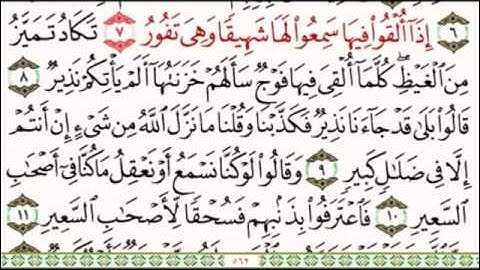 ٦ إِذَآ أُلْقُوا۟ فِيهَا سَمِعُوا۟ لَهَا شَهِيقًا وَهِىَ تَفُورُ ٧ تَكَادُ تَمَيَّزُ
مِنَ ٱلْغَيْظِ ۖ كُلَّمَآ أُلْقِىَ فِيهَا فَوْجٌ سَأَلَهُمْ خَزَنَتُهَآ أَلَمْ يَأْتِكُمْ نَذِيرٌ ٨
قَالُوا۟ بَلَىٰ قَدْ جَآءَنَا نَذِيرٌ فَكَذَّبْنَا وَقُلْنَا مَا نَزَّلَ ٱللَّهُ مِن شَىْءٍ إِنْ أَنتُمْ
إِلَّا فِى ضَلَٰلٍ كَبِيرٍ ٩ وَقَالُوا۟ لَوْ كُنَّا نَسْمَعُ أَوْ نَعْقِلُ مَا كُنَّا فِىٓ أَصْحَٰبِ
ٱلسَّعِيرِ ١٠ فَٱعْتَرَفُوا۟ بِذَنۢبِهِمْ فَسُحْقًا لِّأَصْحَٰبِ ٱلسَّعِيرِ ١١
٥٦٢